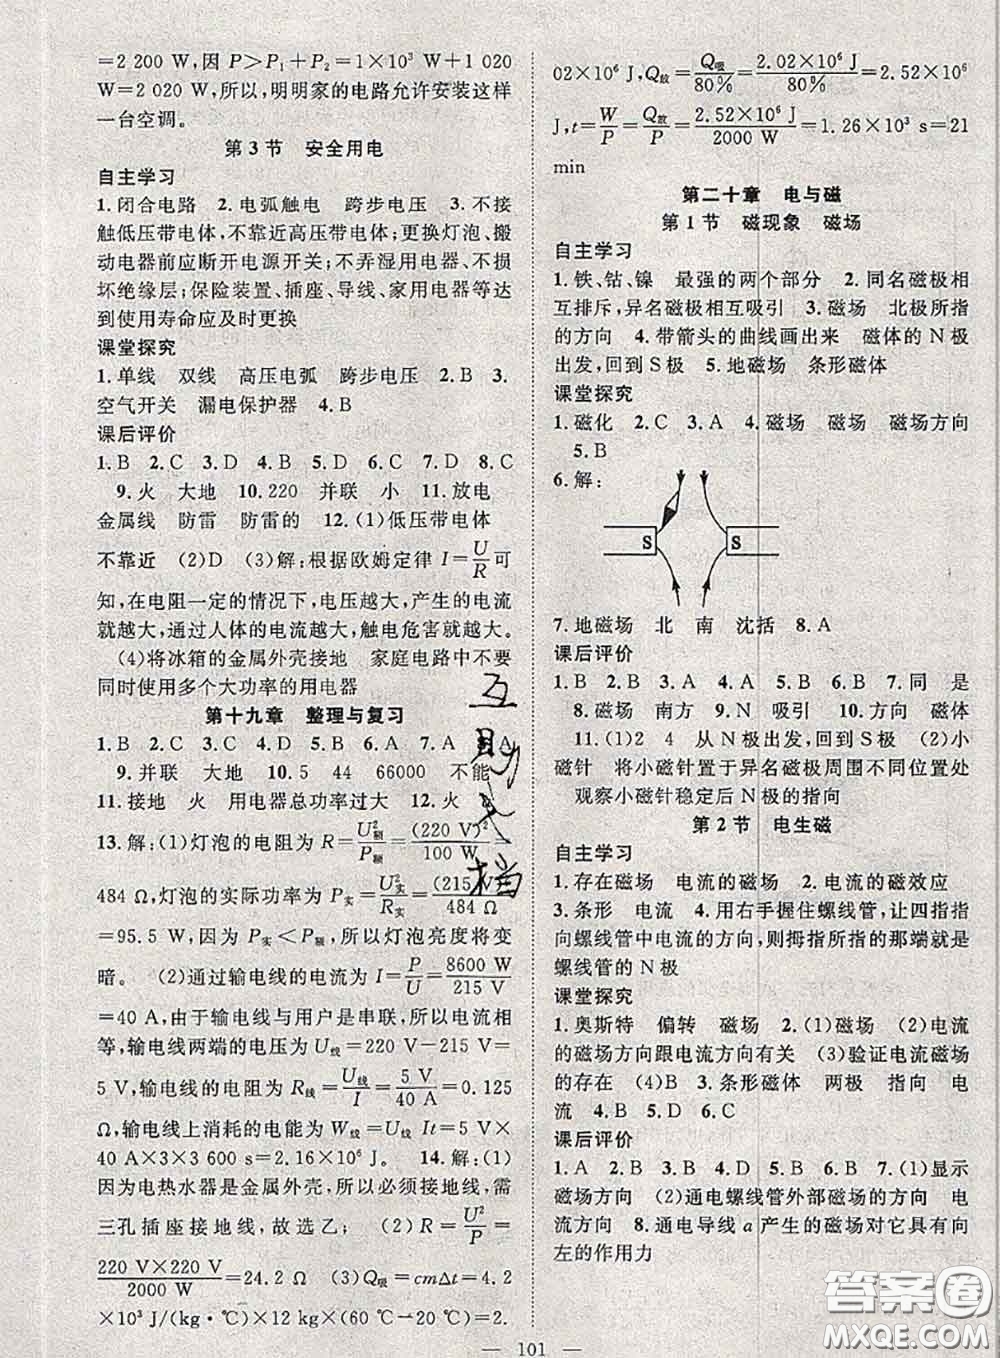 =2 200 W,因 P>P₁+P₂=1×10³ W+1 020
W=2 020 W,所以,明明家的电路允许安装这样
一台空调。
第3节 安全用电
自主学习
1.闭合电路 2.电弧触电 跨步电压 3.不接
触低压带电体,不靠近高压带电体;更换灯泡、搬
动电器前应断开电源开关;不弄湿用电器、不损
坏绝缘层;保险装置、插座、导线、家用电器等达
到使用寿命应及时更换
课堂探究
1.单线 双线 高压电弧 跨步电压 2.B 3.
空气开关 漏电保护器 4.B
课后评价
1.B 2.C 3.D 4.D 5.B 6.C 7.D 8.C
9.火 大地 10.220 并联 小 11.放电
金属线 防雷 防雷的 12.(1)低压带电体
不靠近 (2)D (3)解:根据欧姆定律 I=U/R可
知,在电阻一定的情况下,电压越大,产生的电流
就越大,通过人体的电流越大,触电危害就越大。
(4)将冰箱的金属外壳接地 家庭电路中不要
同时使用多个大功率的用电器
第十九章 整理与复习
1.B 2.C 3.A 4.D 5.B 6.A 7.A 8.A
9.并联 大地 10.5 44 66000 不能
11.接地 火 用电器总功率过大 12.火
13.解:(1)灯泡的电阻为 R=U²额/P额=(220 V)²/100 W=
484 Ω,灯泡的实际功率为 P实=U²实/R实=(215 V)²/484 Ω
=95.5 W,因为 P实<P额,所以灯泡亮度将变
暗。 (2)通过输电线的电流为 I=P/U=8600 W/215 V
=40 A,由于输电线与用户是串联,所以电流相
等,输电线两端的电压为 U线=220 V-215 V=
5 V,输电线的电阻为 R线=U线/I=5 V/40 A=0.125
Ω,输电线上消耗的电能为 W线=U线 It=5 V×
40 A×3×3 600 s=2.16×10⁶ J。 14.解:(1)
因为电热水器是金属外壳,所以必须接地线,需
三孔插座接地线,故选乙; (2)R=U²/P=
220 V×220 V/2000 W=24.2 Ω (3)Q吸=cmΔt=4.2
×10³ J/(kg·℃)×10kg×(60 ℃-20 ℃)=2.
02×10⁶ J,Q放=Q吸/80%=2.02×10⁶ J/80%=2.52×10⁶
J,t=W/P=Q放/P=2.52×10⁶ J/2000 W=1.26×10³ s=21
min
第二十章 电与磁
第1节 磁现象 磁场
自主学习
1.铁、钴、镍 最强的两个部分 2.同名磁极相
互排斥,异名磁极相互吸引 3.磁场 北极所指
的方向 4.带箭头的曲线画出来 磁体的N极
出发,回到S极 5.地磁场 条形磁体
课堂探究
1.磁化 2.C 3.A 4.磁场 磁场 磁场方向
5.B
6.解:
S S
7.地磁场 北 南 沈括 8.A
课后评价
1.B 2.D 3.A 4.A 5.B 6.B 7.同 是
8.磁场 南方 9.N 吸引 10.方向 磁体
11.(1)2 4 从N极出发,回到S极 (2)小
磁针 将小磁针置于异名磁极周围不同位置处
观察小磁针稳定后N极的指向
第2节 电生磁
自主学习
1.存在磁场 电流的磁场 2.电流的磁效应
3.条形 电流 4.用右手握住螺线管,让四指指
向螺线管中电流的方向,则拇指所指的那端就是
螺线管的N极
课堂探究
1.奥斯特 偏转 磁场 2.(1)磁场 (2)电流
的磁场方向跟电流方向有关 (3)验证电流磁场
的存在 (4)B 3.条形磁体 两极 指向 电
流 4.B 5.D 6.C
课后评价
1.A 2.D 3.A 4.B 5.B 6.B 7.(1)显示
磁场方向 (2)通电螺线管外部磁场的方向 电
流方向 8.通电导线a产生的磁场对它具有向
左的作用力
101
互助文档
答案圈
MXQE.COM